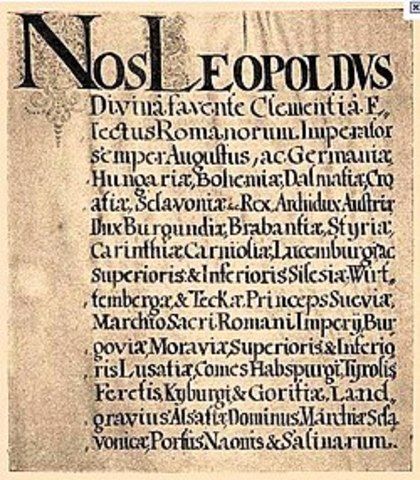 NOS LEOPOLDVS
Divina favente Clementia E„
lectus Romanorum Imperator
semper Augustus, ac Germaniæ
Hungariæ, Bohemiæ, Dalmatiæ, Cro
atiæ, Sclavoniæ &c. Rex, Archidux Austriæ
Dux Burgundiæ, Brabantiæ, Styriæ,
Carinthiæ, Carnioliæ, Lucemburgi, ac
superioris & Inferioris Silesiæ, Wirt„
tembergæ, & Teckæ, Princeps Sueviæ,
Marchio Sacri Romani Imperij, Bur„
goviæ, Moraviæ, Superioris & Inferio
ris Lusatiæ, Comes Habspurgi, Tyrolis
Feretis, Kyburgi & Goritiæ, Land„
gravius Alsatiæ, Dominus, Marchiæ Scla
vonicæ, Portus Naonis & Salinarum.